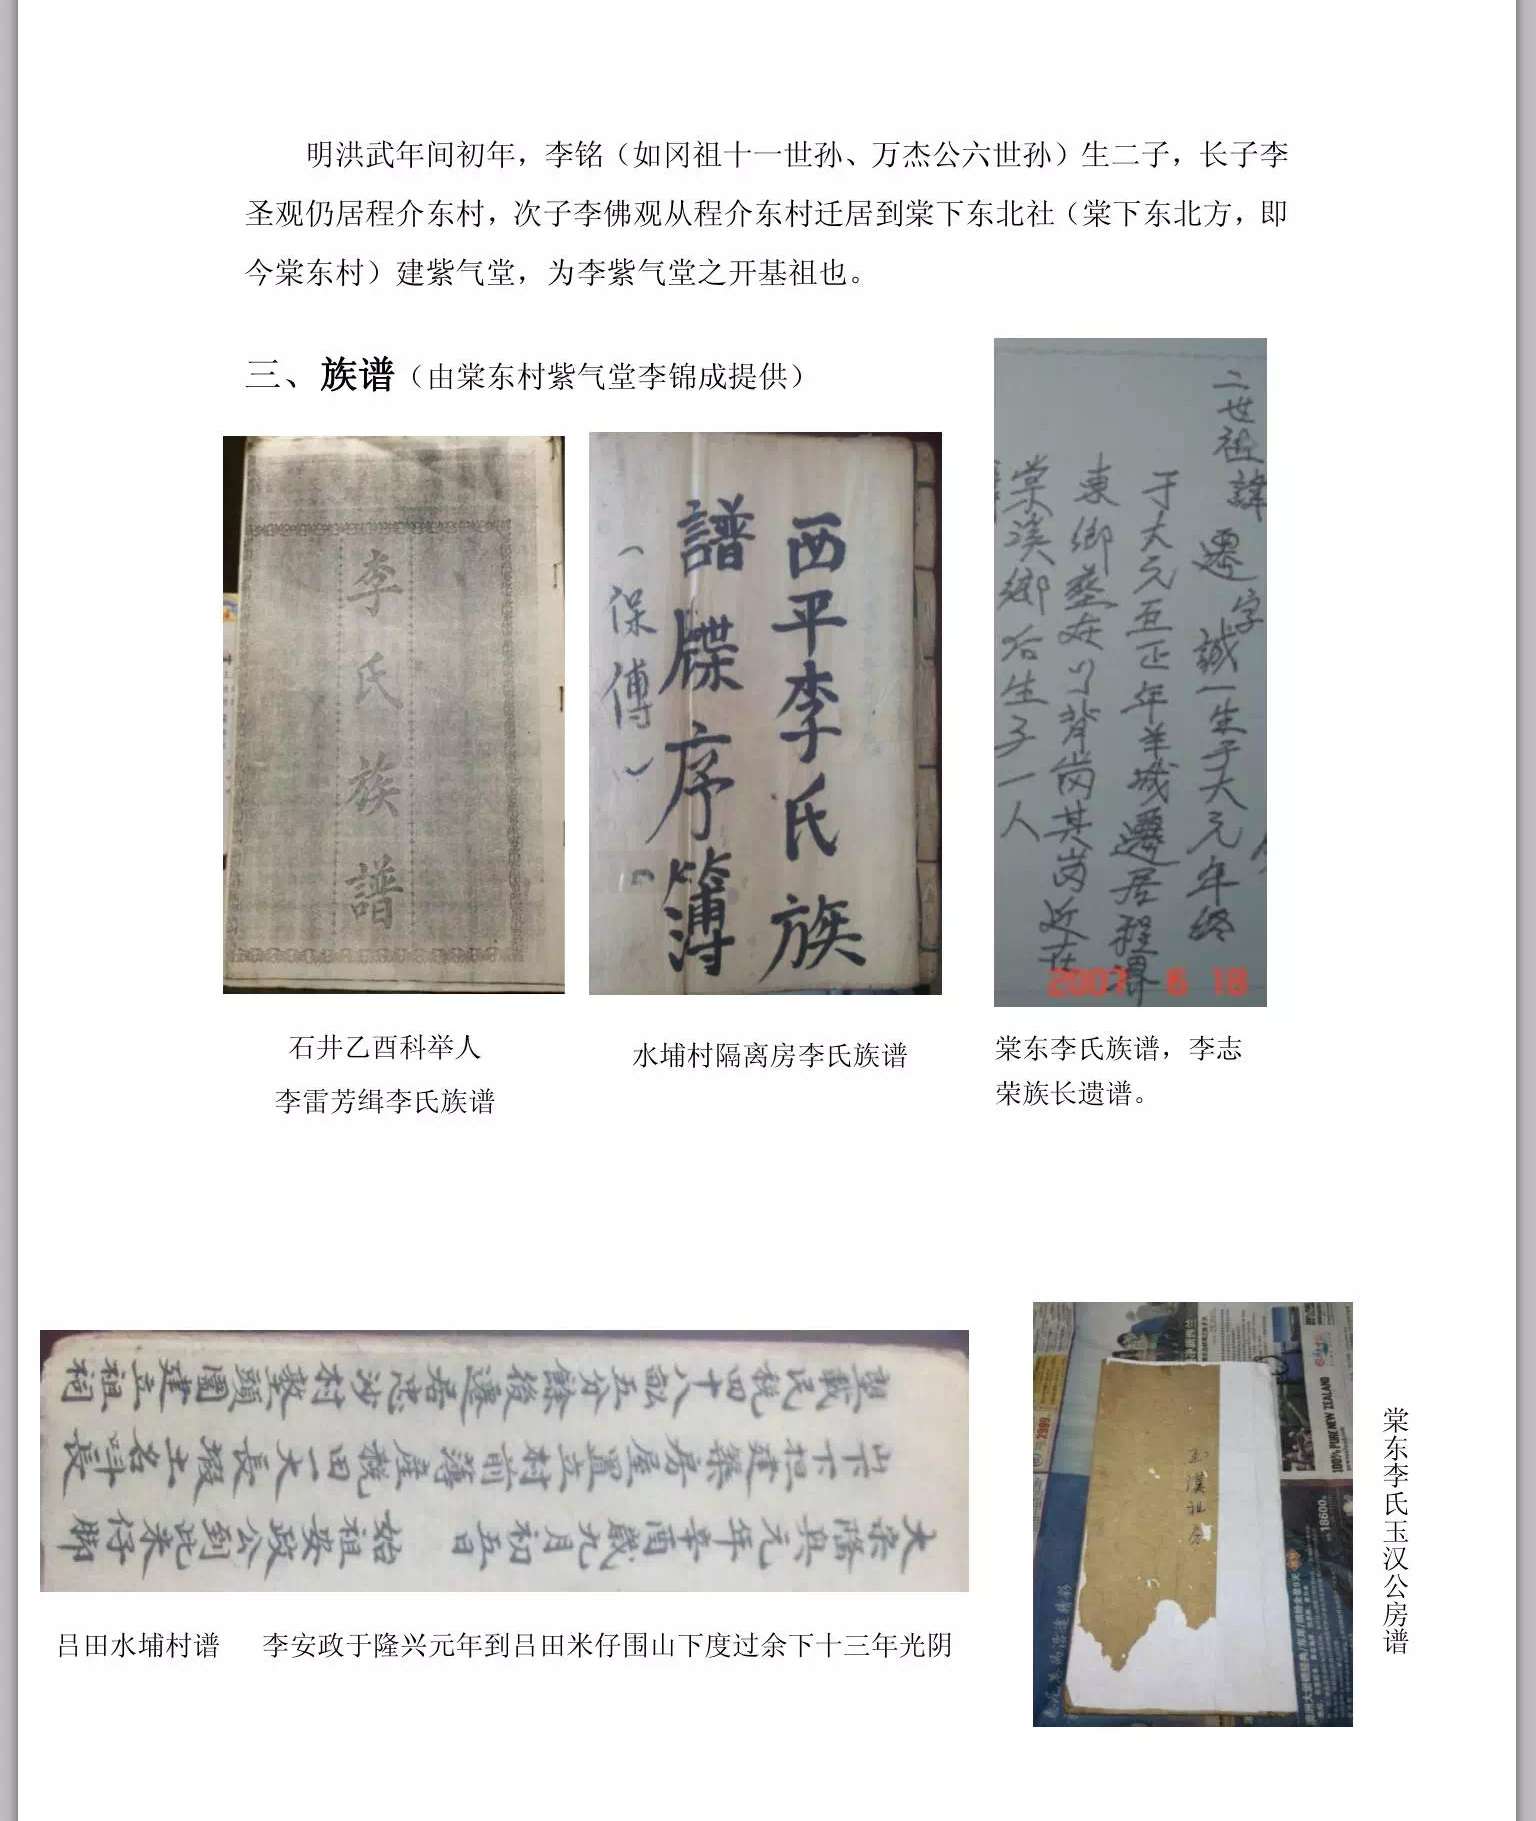 明洪武年间初年，李铭（如冈祖十一世孙、万杰公六世孙）生二子，长子李
圣观仍居程介东村，次子李佛观从程介东村迁居到棠下东北社（棠下东北方，即
今棠东村）建紫气堂，为李紫气堂之开基祖也。
三、族谱（由棠东村紫气堂李锦成提供）
李氏族譜
西平李氏族
譜牒序簿
（保傅）
二世祖諱遷字誠一生于大元年终
于大元至正年羊城遷居程潭
東鄉 在 背岗其岗近在
棠溪鄉后生子一人
2007 6 18
石井乙酉科举人
李雷芳缉李氏族谱
水埔村隔离房李氏族谱
棠东李氏族谱，李志
荣族长遗谱。
大宗隆興元年辛酉歲九月初五日 始祖安政公到此米仔脚
山下担建築房屋置立村前薄産税田一大長塅土名科長
墾載民税四十八畝五分餘後遷居忠沙村墪頭圍建立祖祠
吕田水埔村谱 李安政于隆兴元年到吕田米仔围山下度过余下十三年光阴
玉漢祖房
100% PURE NEW ZEALAND
2999
18600
棠东李氏玉汉公房谱